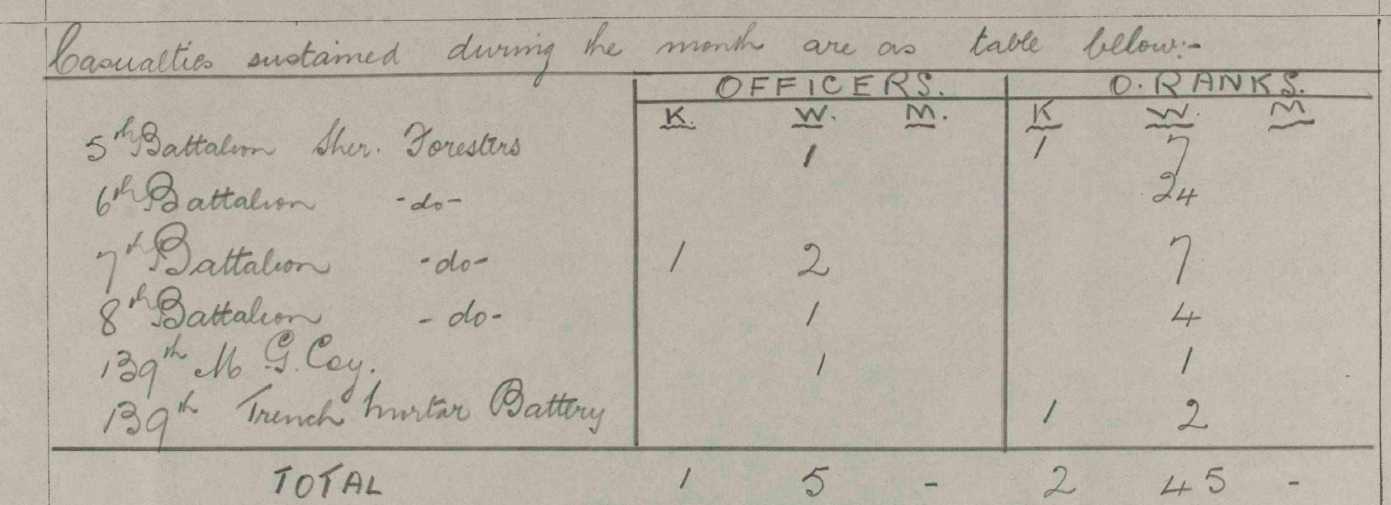 Casualties sustained during the month are as table bellow:-
OFFICERS. O. RANKS.
K. W. M. K W. M
5th Battalion Sher. Foresters 1 1 7
6th Battalion -do- 24
7th Battalion -do- 1 2 7
8th Battalion -do- 1 4
139th M. G. Coy. 1 1
139th Trench Mortar Battery 1 2
TOTAL 1 5 - 2 45 -